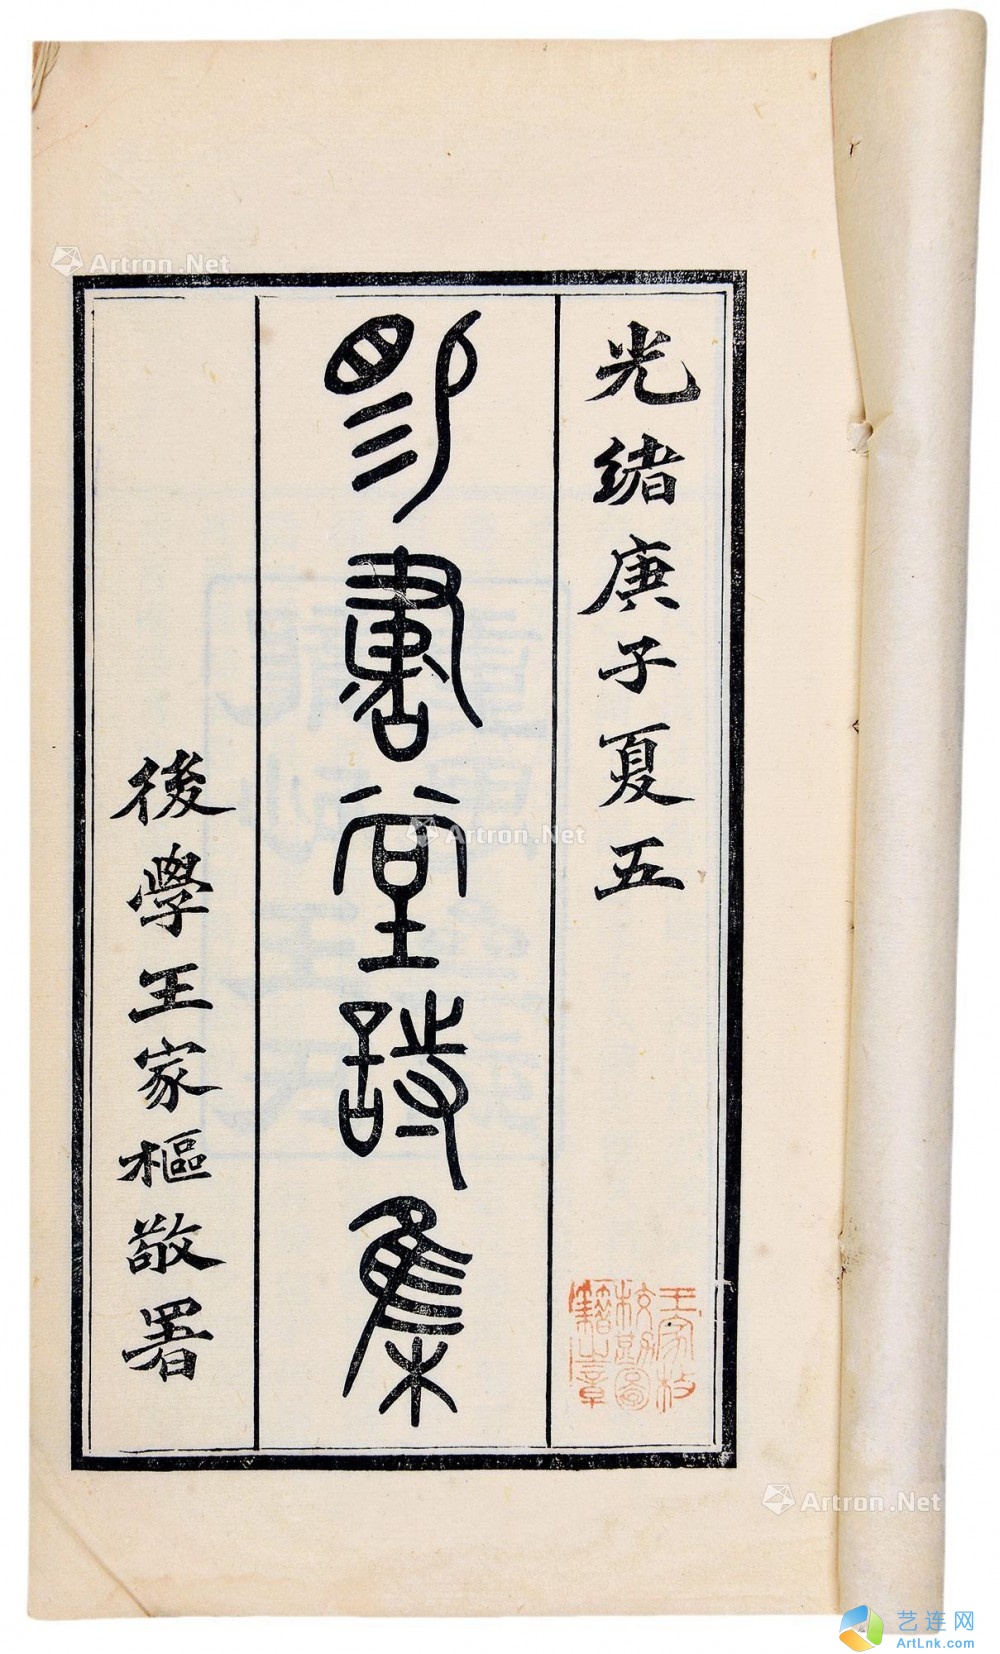 光緒庚子夏五
賜書堂詩集
後學王家樞敬署
王家枚
校勘圖
籍之章
Artron.Net
Artron.Net
Artron.Net
艺连网
ArtLnk.com